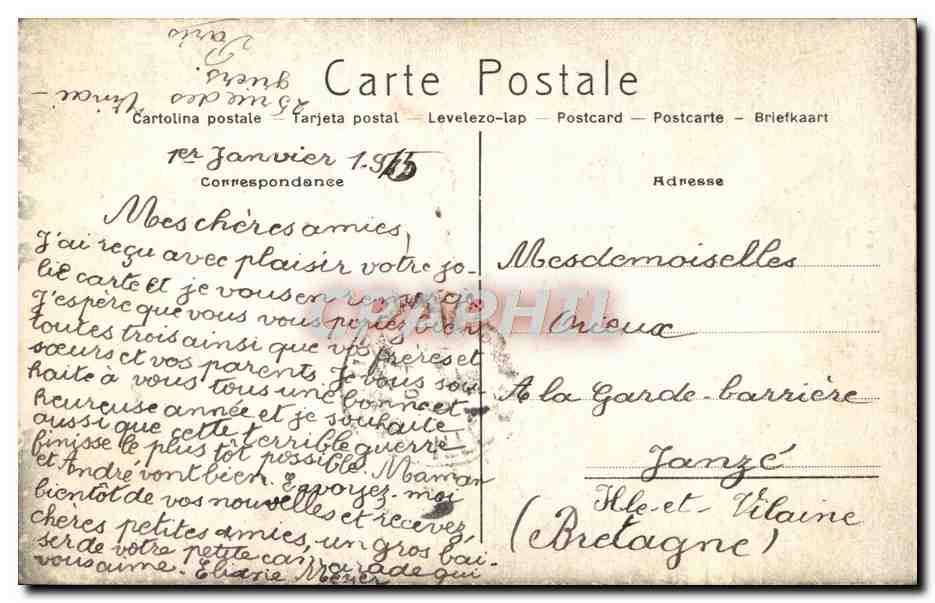 Paris
25 rue des
Carte Postale
Cartolina postale — Tarjeta postal — Levelezo-lap — Postcard — Postcarte — Briefkaart
1er Janvier 1915
Correspondance
Mes chères amies,
J'ai reçu avec plaisir votre jo-
lie carte et je vous en remercie
J'espère que vous vous portez bien
toutes trois ainsi que vos frères et
sœurs et vos parents. Je vous sou-
haite à vous tous une bonne et
heureuse année et je souhaite
aussi que cette terrible guerre
finisse le plus tôt possible. Maman
et André vont bien. Envoyez-moi
bientôt de vos nouvelles et recevez,
chères petites amies, un gros bai-
ser de votre petite camarade qui
vous aime. Eliane Meyer
Adresse
Mesdemoiselles
Orieux
A la Garde-barrière
Janzé
Ille-et-Vilaine
(Bretagne)
CPAPHIL